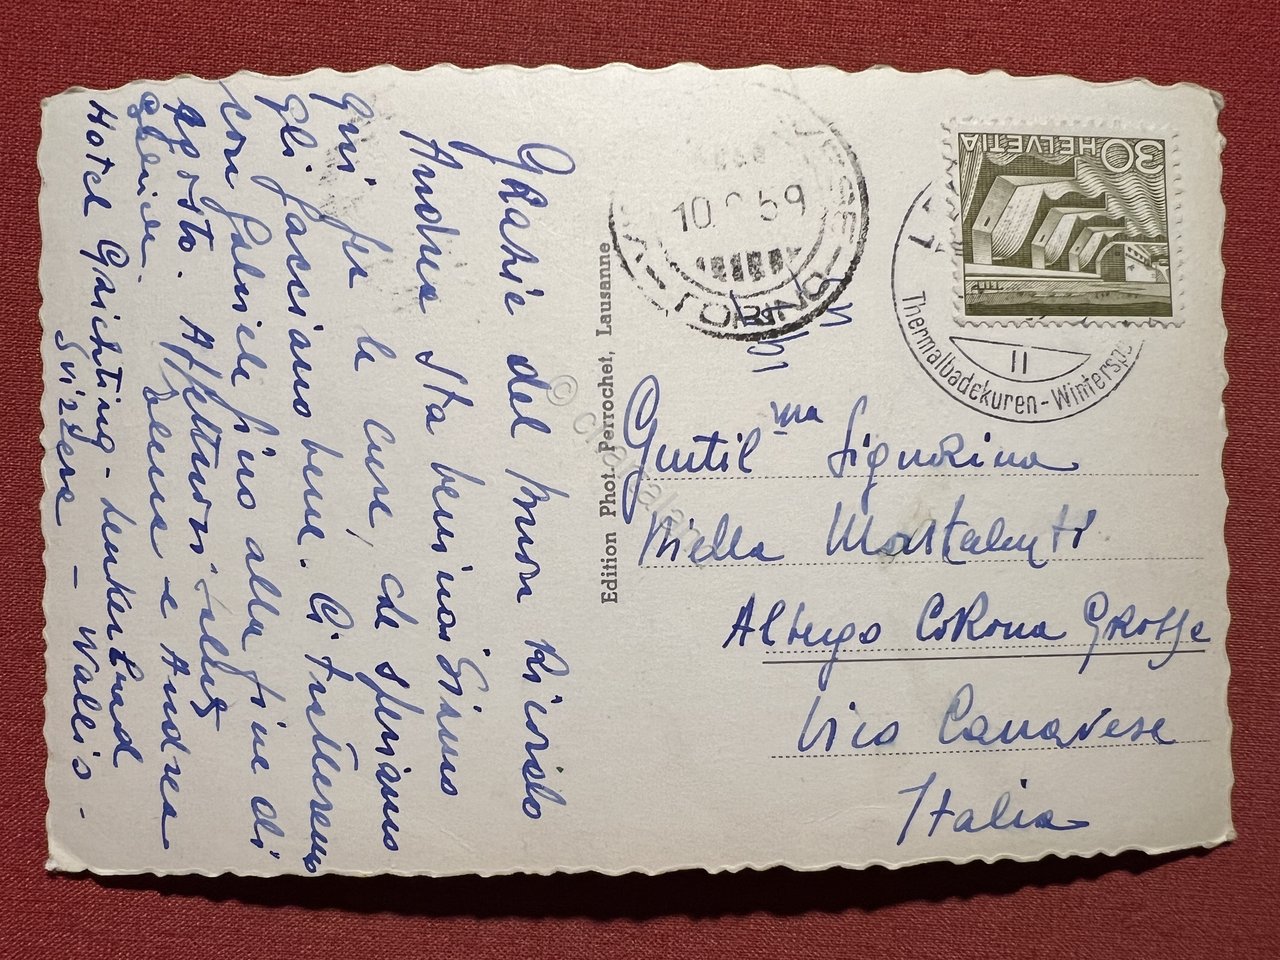 Grazie del buon ricordo
Andrea sta benino. Siamo
qui per le cure, che speriamo
gli facciano bene. Ci tratteremo
con Gabriele fino alla fine di
agosto. Affettuosi saluti
Irene e Andrea
Hotel Gaichting - Leukerbad
Svizzera - Wallis -
Edition Phot. Perrochet, Lausanne
10. 59
TORINO
HELVETIA 30
Thermalbadekuren - Wintersp
11
Gentil ma Signorina
Mortalenti
Albergo Corona Grossa
Vico Canavese
Italia